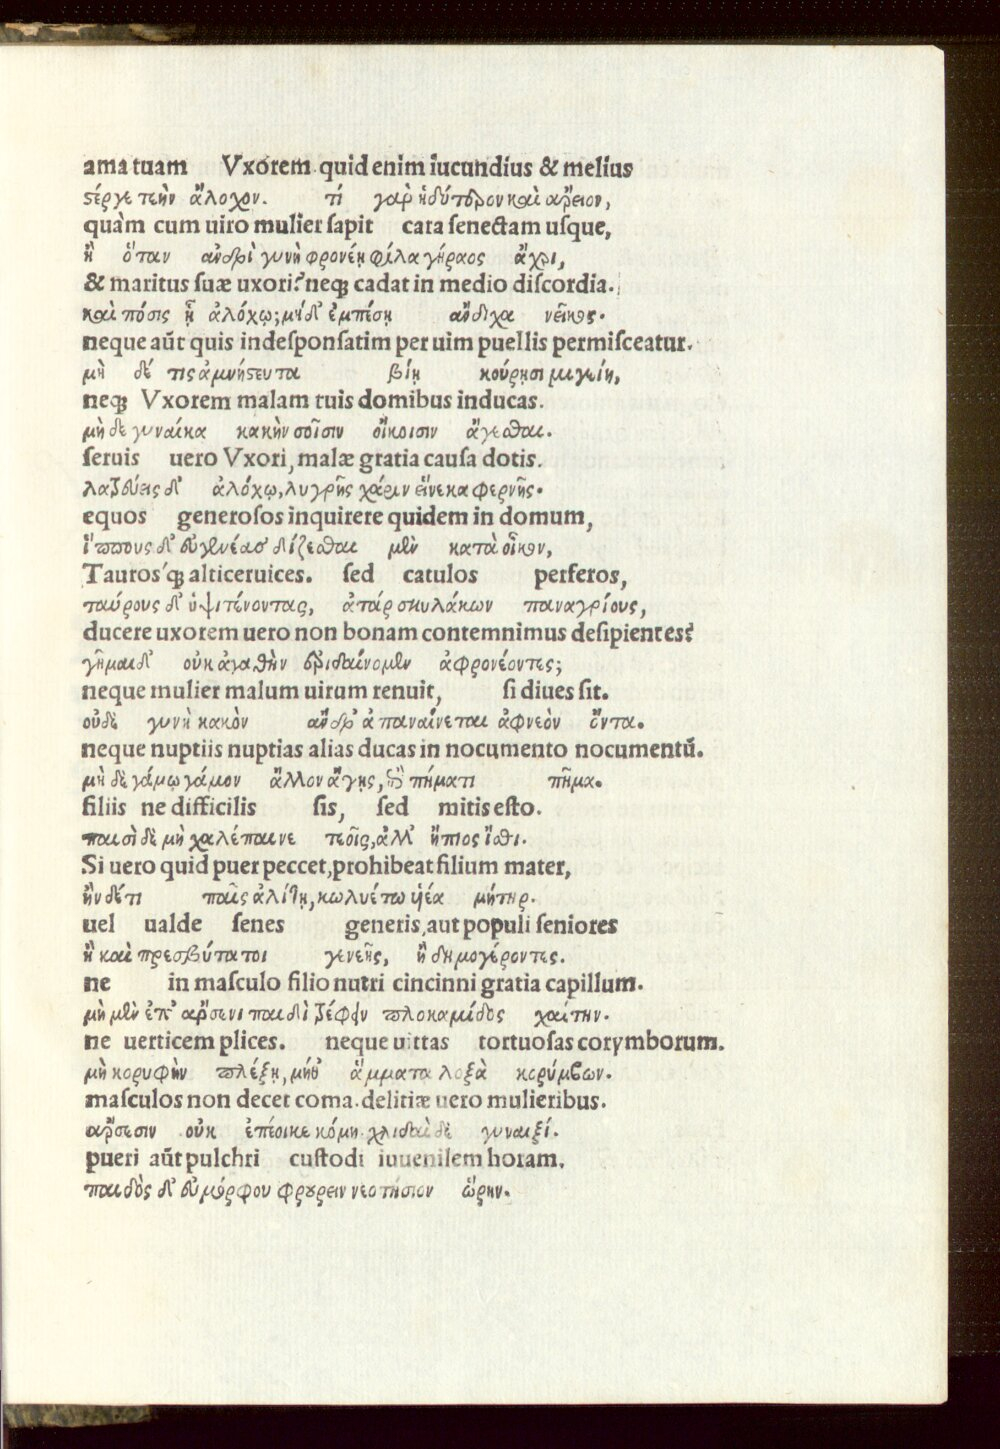 ama tuam Vxorem quid enim iucundius & melius
ϛέργε τεὴν ἄλοχον. τί γὰρ ἡδύτερον καὶ ἄρειον,
quàm cum uiro mulier ſapit cara ſenectam uſque,
ἢ ὅταν ἀνδρὶ γυνὴ φρονέῃ φίλα γήραος ἄχρι,
& maritus ſuæ uxori? neqꝫ cadat in medio diſcordia.
καὶ πόσις ᾗ ἀλόχῳ; μηδ' ἐμπέσῃ ἄνδιχα νεῖκος.
neque aūt quis indeſponſatim per uim puellis permiſceatur.
μὴ δέ τις ἀμνήϛευτα βίῃ κούρῃσι μιγείη,
neqꝫ Vxorem malam tuis domibus inducas.
μὴ δὲ γυναῖκα κακὴν σοῖσιν οἴκοισιν ἄγεσθαι.
ſeruis uero Vxori, malæ gratia cauſa dotis.
λατρεύεις δ' ἀλόχῳ, λυγρῆς χάριν εἵνεκα φερνῆς.
equos generoſos inquirere quidem in domum,
ἵππους δ' εὐγενέας δίζεσθαι μὲν κατὰ οἶκον,
Tauros'qꝫ alticeruices. ſed catulos perferos,
ταύρους δ' ὑψιτένοντας, ἀτάρ σκυλάκων παναγρίους,
ducere uxorem uero non bonam contemnimus deſipientes?
γῆμαι δ' οὐκ ἀγαθὴν ἐριδαίνομεν ἀφρονέοντες;
neque mulier malum uirum renuit, ſi diues ſit.
οὐδὲ γυνὴ κακὸν ἄνδρ' ἀπαναίνεται ἀφνεὸν ὄντα.
neque nuptiis nuptias alias ducas in nocumento nocumentū.
μὴ δὲ γάμῳ γάμον ἄλλον ἄγῃς, ἐπὶ πήματι πῆμα.
filiis ne difficilis ſis, ſed mitis eſto.
παισὶ δὲ μὴ χαλέπαινε τεοῖς, ἀλλ' ἤπιος ἴσθι.
Si uero quid puer peccet, prohibeat filium mater,
ἢν δέ τι παῖς ἀλίτῃ, κωλυέτω υἱέα μήτηρ.
uel ualde ſenes generis, aut populi ſeniores
ἢ καὶ πρεσβύτατοι γενεῆς, ἢ δημογέροντες.
ne in maſculo filio nutri cincinni gratia capillum.
μὴ μὲν ἐπ' ἄρσενι παιδὶ τρέφειν πλοκαμίδος χαίτην.
ne uerticem plices. neque uittas tortuoſas corymborum.
μὴ κορυφὴν πλέξῃ, μήθ' ἅμματα λοξὰ κορύμβων.
maſculos non decet coma. delitiæ uero mulieribus.
ἄρσεσιν οὐκ ἐπέοικε κόμη χλιδαὶ δὲ γυναιξί.
pueri aūt pulchri cuſtodi iuuenilem horam.
παιδὸς δ' εὐμόρφου φρουρεῖν νεοτήσιον ὥρην.